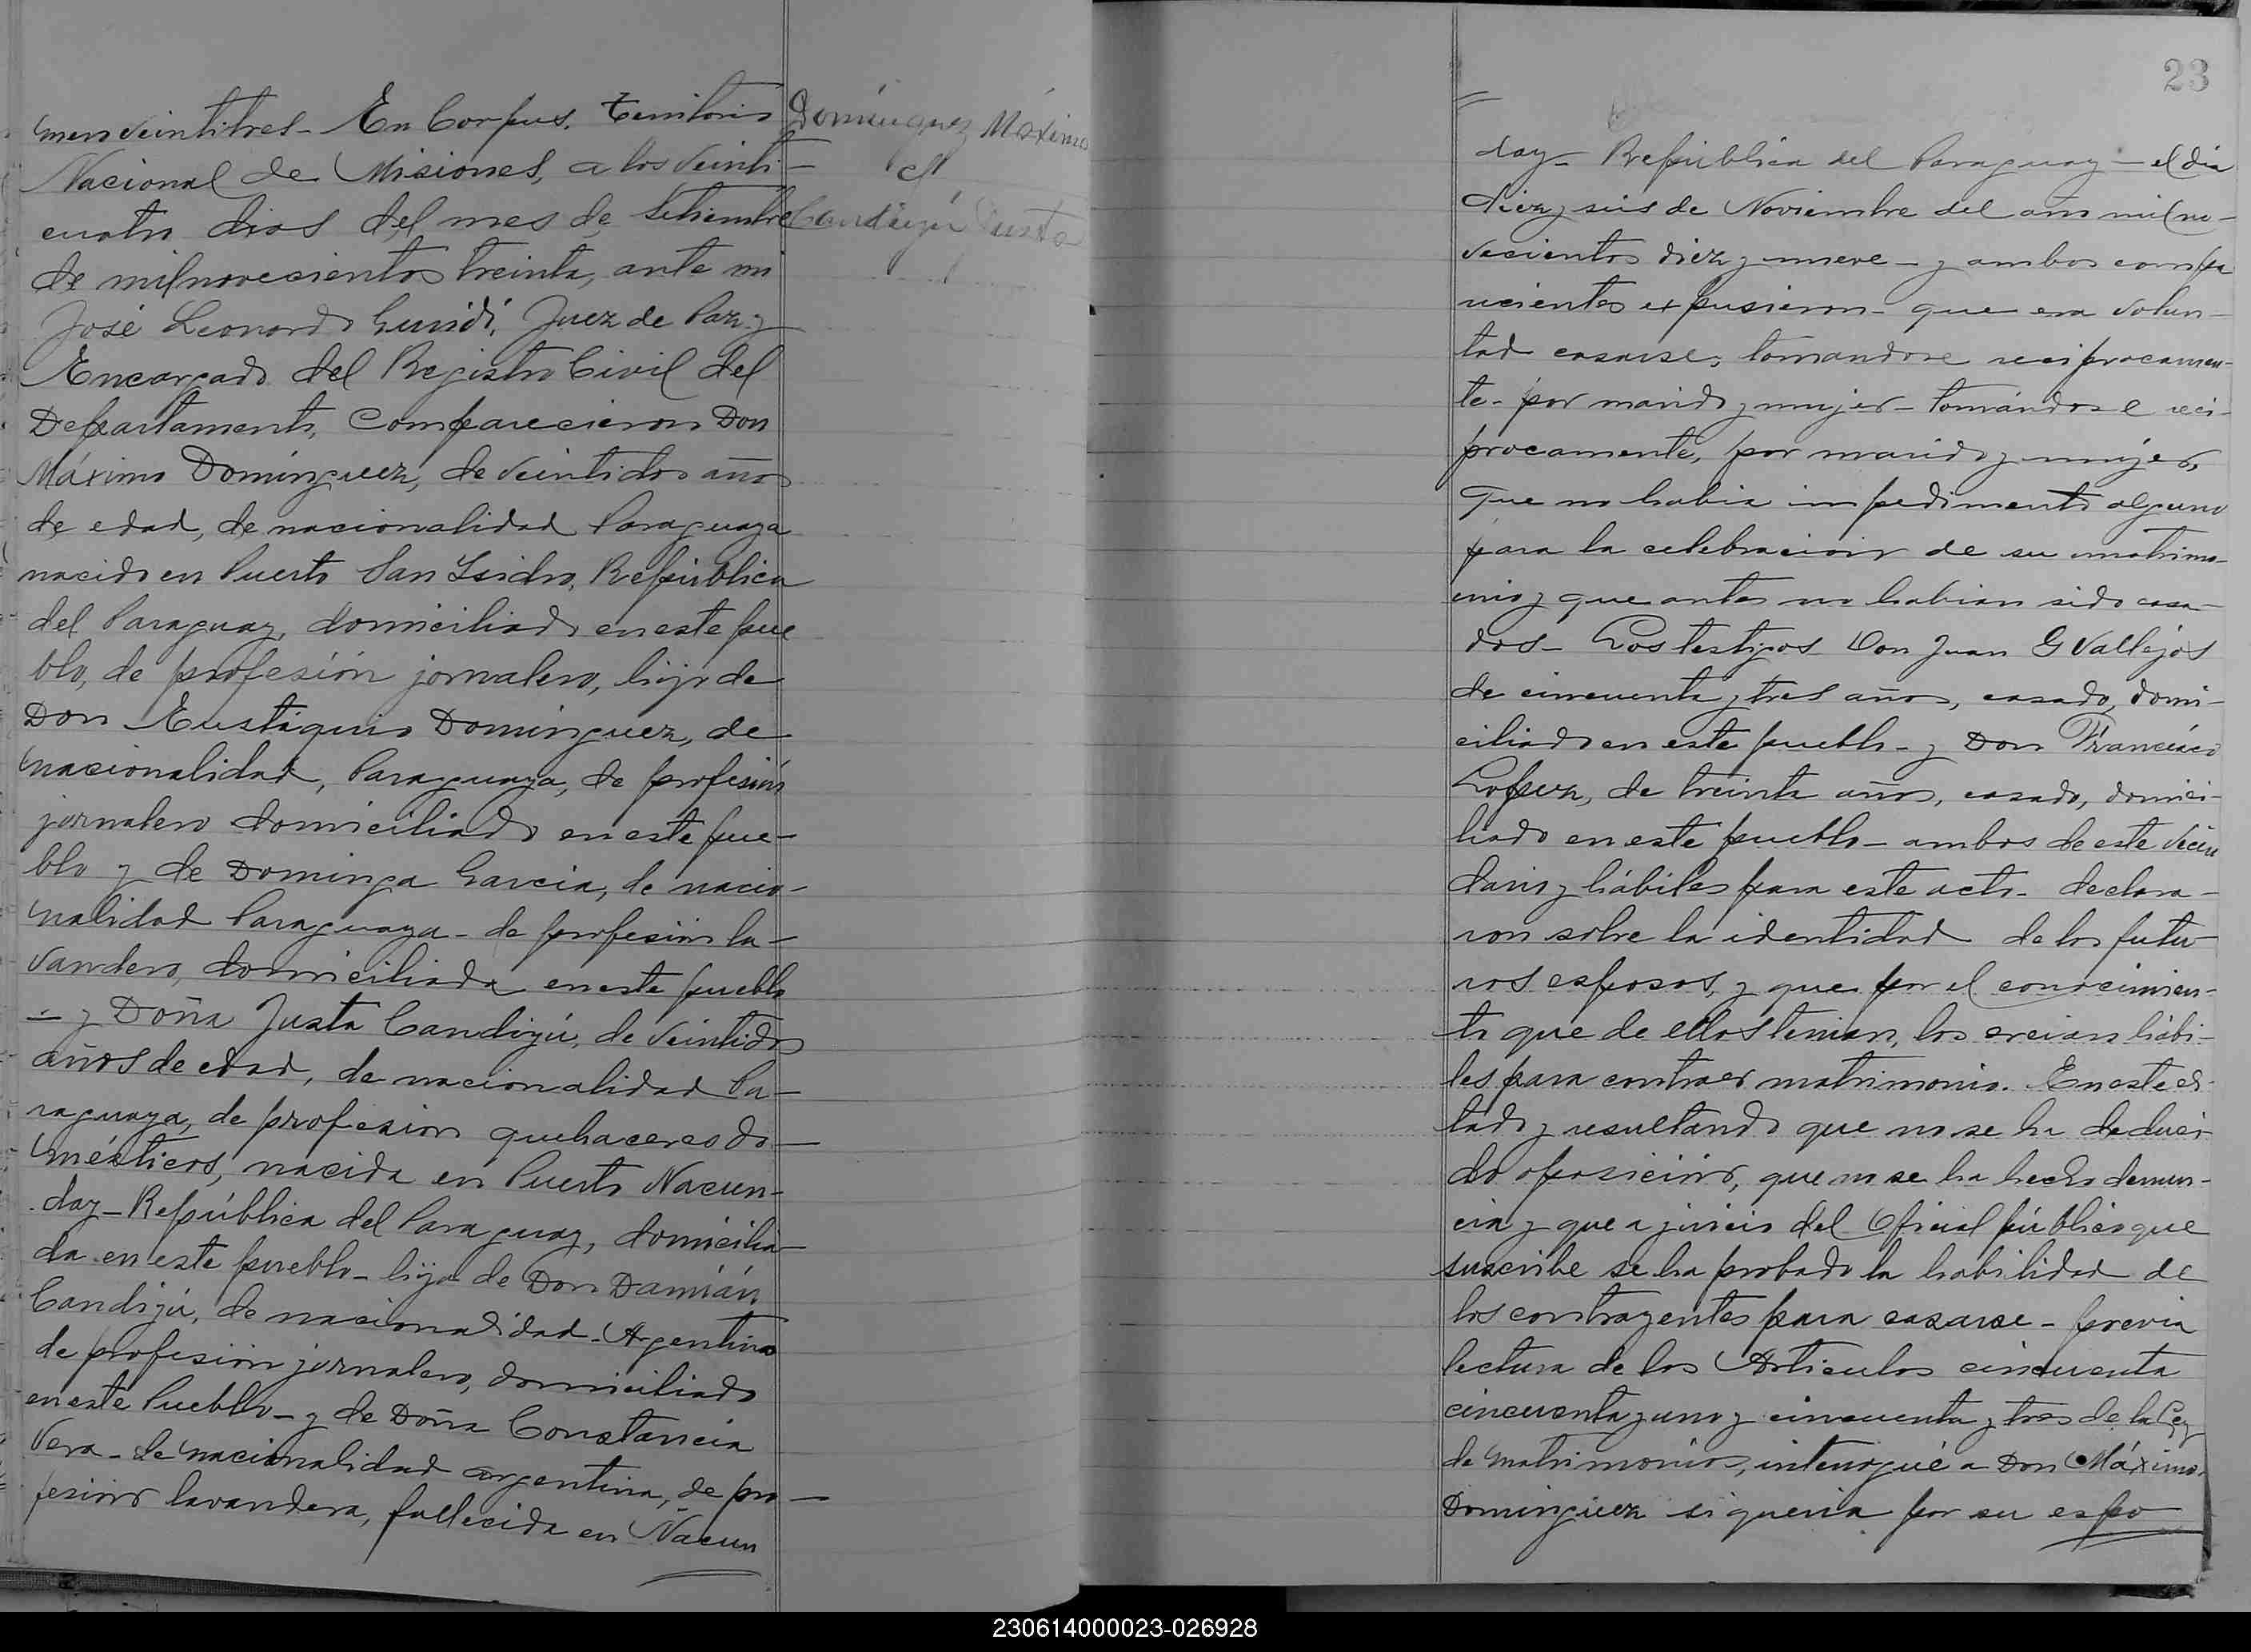 mero veintitres - En Corpus. Territorio
Nacional de Misiones, a los veinti-
cuatro dias del mes de Setiembre
de mil novecientos treinta, ante mi
José Leonardo Guridi, Juez de Paz y
Encargado del Registro Civil del
Departamento, Comparecieron Don
Máximo Domínguez, de veintidos años
de edad, de nacionalidad Paraguaya
nacido en Puerto San Isidro, República
del Paraguay, domiciliado en este pue
blo, de profesión jornalero, hijo de
Don Eustaquio Domínguez, de
nacionalidad, Paraguaya, de profesión
jornalero domiciliado en este pue-
blo y de Dominga Garcia, de nacio-
nalidad Paraguaya - de profesión la-
vandera, domiciliada en este pueblo
- y Doña Justa Candiyú, de veintidos
años de edad, de nacionalidad Pa-
raguaya, de profesion quehaceres do-
mésticos, nacida en Puerto Nacun-
day - República del Paraguay, domicilia-
da en este pueblo - hija de Don Damián
Candiyú, de nacionalidad - Argentina
de profesión jornalero, domiciliado
en este Pueblo - y de Doña Constancia
Vera - de nacionalidad argentina, de pro-
fesión lavandera, fallecida en Nacun
Domínguez Máximo
c/
Candiyú Justa
23
day - República del Paraguay - el dia
diez y seis de Noviembre del año mil no-
vecientos diez y nueve - y ambos compa
recientes expusieron - que era volun-
tad casarse, tomandose reciprocamen-
te - por marido y mujer - tomándose reci-
procamente, por marido y mujer,
que no habia impedimento alguno
para la celebracion de su matrimo-
nio y que antes no habian sido casa-
dos - Los testigos Don Juan G Vallejos
de cincuenta y tres años, casado, domi-
ciliado en este pueblo - y Don Francisco
Lopez, de treinta años, casado, domici-
liado en este pueblo - ambos de este vecin
dario y hábiles para este acto - declara-
ron sobre la identidad de los futu-
ros esposos, y que por el conocimien-
to que de ellos tenian, los creian hábi-
les para contraer matrimonio. En este es-
tado y resultando que no se ha deduci-
do oposición, que no se ha hecho denun-
cia y que a juicio del Oficial público que
suscribe se ha probado la habilidad de
los contrayentes para casarse - previa
lectura de los Articulos cincuenta
cincuenta y uno y cincuenta y tres de la Ley
de Matrimonio, interrogué a Don Máximo
Dominguez si queria por su espo
230614000023-026928